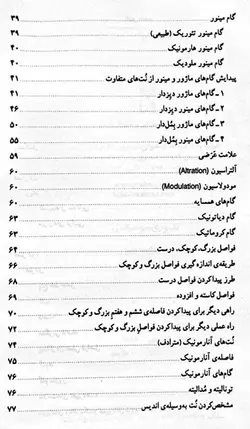 گام مینور ۳۹
گام مینور تئوریک (طبیعی) ۳۹
گام مینور هارمونیک ۴۰
گام مینور ملودیک ۴۰
پیدایش گام‌های ماژور و مینور از نُت‌های متفاوت ۴۱
۱ـ گام‌های ماژور دیِزدار ۴۱
۲ـ گام‌های مینور دیِزدار ۴۶
۳ـ گام‌های ماژور بِمُل‌دار ۵۰
۴ـ گام‌های مینور بِمُل‌دار ۵۵
علامت عَرَضی ۵۹
آلتراسیون (Altration) ۶۰
مودولاسیون (Modulation) ۶۰
گام‌های همسایه ۶۰
گام دیاتونیک ۶۳
گام کروماتیک ۶۳
فواصل بزرگ، کوچک، درست ۶۴
طریقه‌ی اندازه گیری فواصل بزرگ و کوچک ۶۶
طرز پیداکردن فواصل درست ۶۸
فواصل کاسته و افزوده ۶۹
راهی دیگر برای پیداکردن فاصله‌ی ششم و هفتم بزرگ و کوچک ۷۰
راه عملی دیگر برای پیداکردن فواصل بزرگ و کوچک ۷۲
نُت‌های آنارمونیک (مترادف) ۷۴
فاصله‌ی آنارمونیک ۷۵
گام‌های آنارمونیک ۷۶
تونالیته و مُدالیته ۷۶
مشخص‌کردن نُت به‌وسیله‌ی اندیس ۷۷